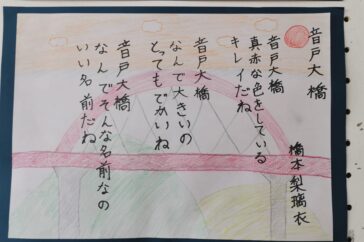 音戸大橋
橋本梨璃衣
音戸大橋
真赤な色をしている
キレイだね
音戸大橋
なんで大きいの
とってもでかいね
音戸大橋
なんでそんな名前なの
いい名前だね